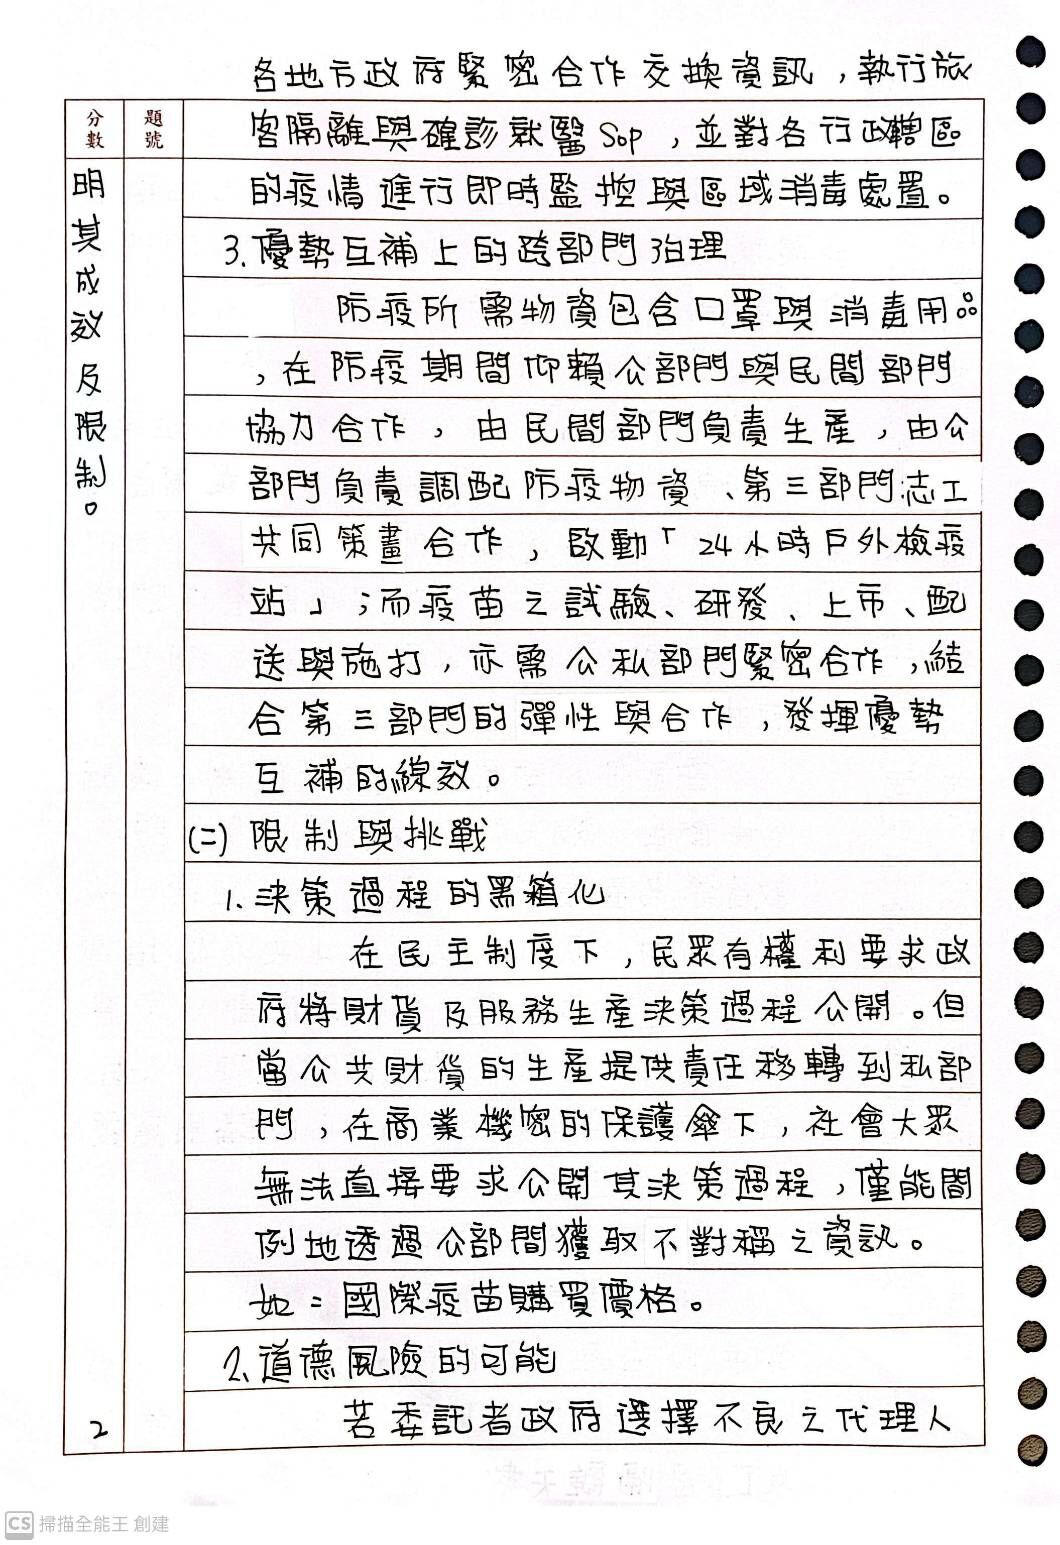 各地方政府緊密合作交換資訊，執行旅
分數
題號
客隔離與確診就醫Sop，並對各行政轄區
的疫情進行即時監控與區域消毒處置。
3.優勢互補上的跨部門治理
防疫所需物資包含口罩與消毒用品
，在防疫期間仰賴公部門與民間部門
協力合作，由民間部門負責生產，由公
部門負責調配防疫物資、第三部門志工
共同策畫合作，啟動「24小時戶外檢疫
站」；而疫苗之試驗、研發、上市、配
送與施打，亦需公私部門緊密合作，結
合第三部門的彈性與合作，發揮優勢
互補的綜效。
(二)限制與挑戰
1.決策過程的黑箱化
在民主制度下，民眾有權利要求政
府將財貨及服務生產決策過程公開。但
當公共財貨的生產提供責任移轉到私部
門，在商業機密的保護傘下，社會大眾
無法直接要求公開其決策過程，僅能間
例地透過公部間獲取不對稱之資訊。
如：國際疫苗購買價格。
2.道德風險的可能
若委託者政府選擇不良之代理人
明其成效及限制。
2
CS 掃描全能王 創建